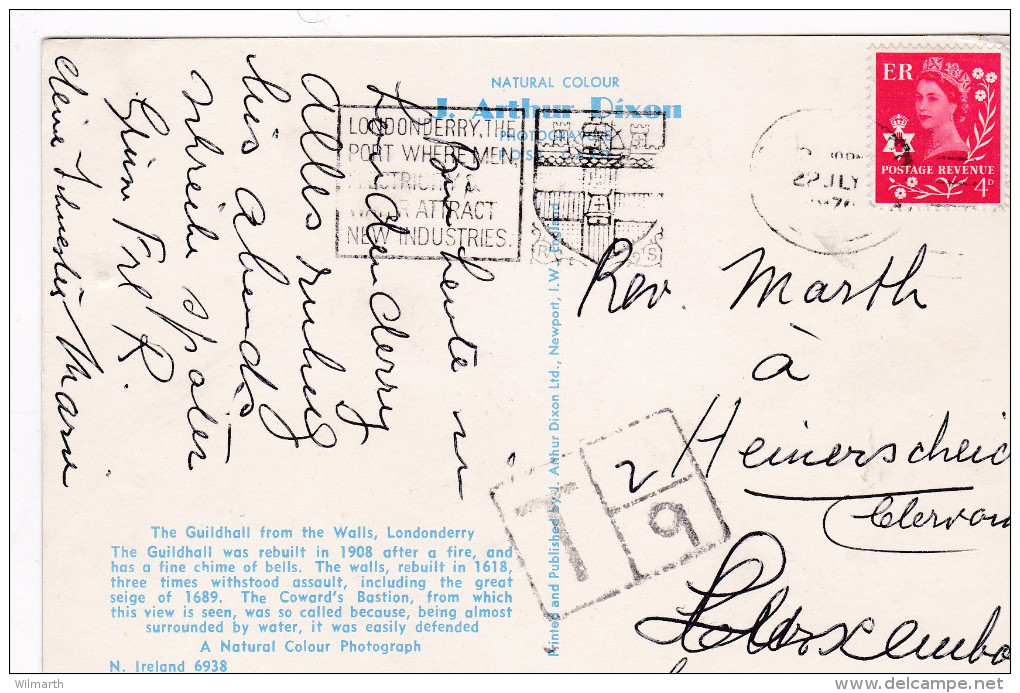 NATURAL COLOUR
J. Arthur Dixon
PHOTOGRAPH
LONDONDERRY, THE
PORT WHERE MEN,
ELECTRICITY &
WATER ATTRACT
NEW INDUSTRIES.
R S
22 JLY
ER
POSTAGE REVENUE
4D
Bin heute in
Londonderry
Alles ruhig
bis abends
schreibe später
Frl R.
deine Schwester Marie
Rev. Marth
à
Heinerscheid
Clervau
Luxembo
T
2
9
Printed and Published by J. Arthur Dixon Ltd., Newport, I.W., England
The Guildhall from the Walls, Londonderry
The Guildhall was rebuilt in 1908 after a fire, and
has a fine chime of bells. The walls, rebuilt in 1618,
three times withstood assault, including the great
seige of 1689. The Coward's Bastion, from which
this view is seen, was so called because, being almost
surrounded by water, it was easily defended
A Natural Colour Photograph
N. Ireland 6938
Wilmarth
www.delcampe.net